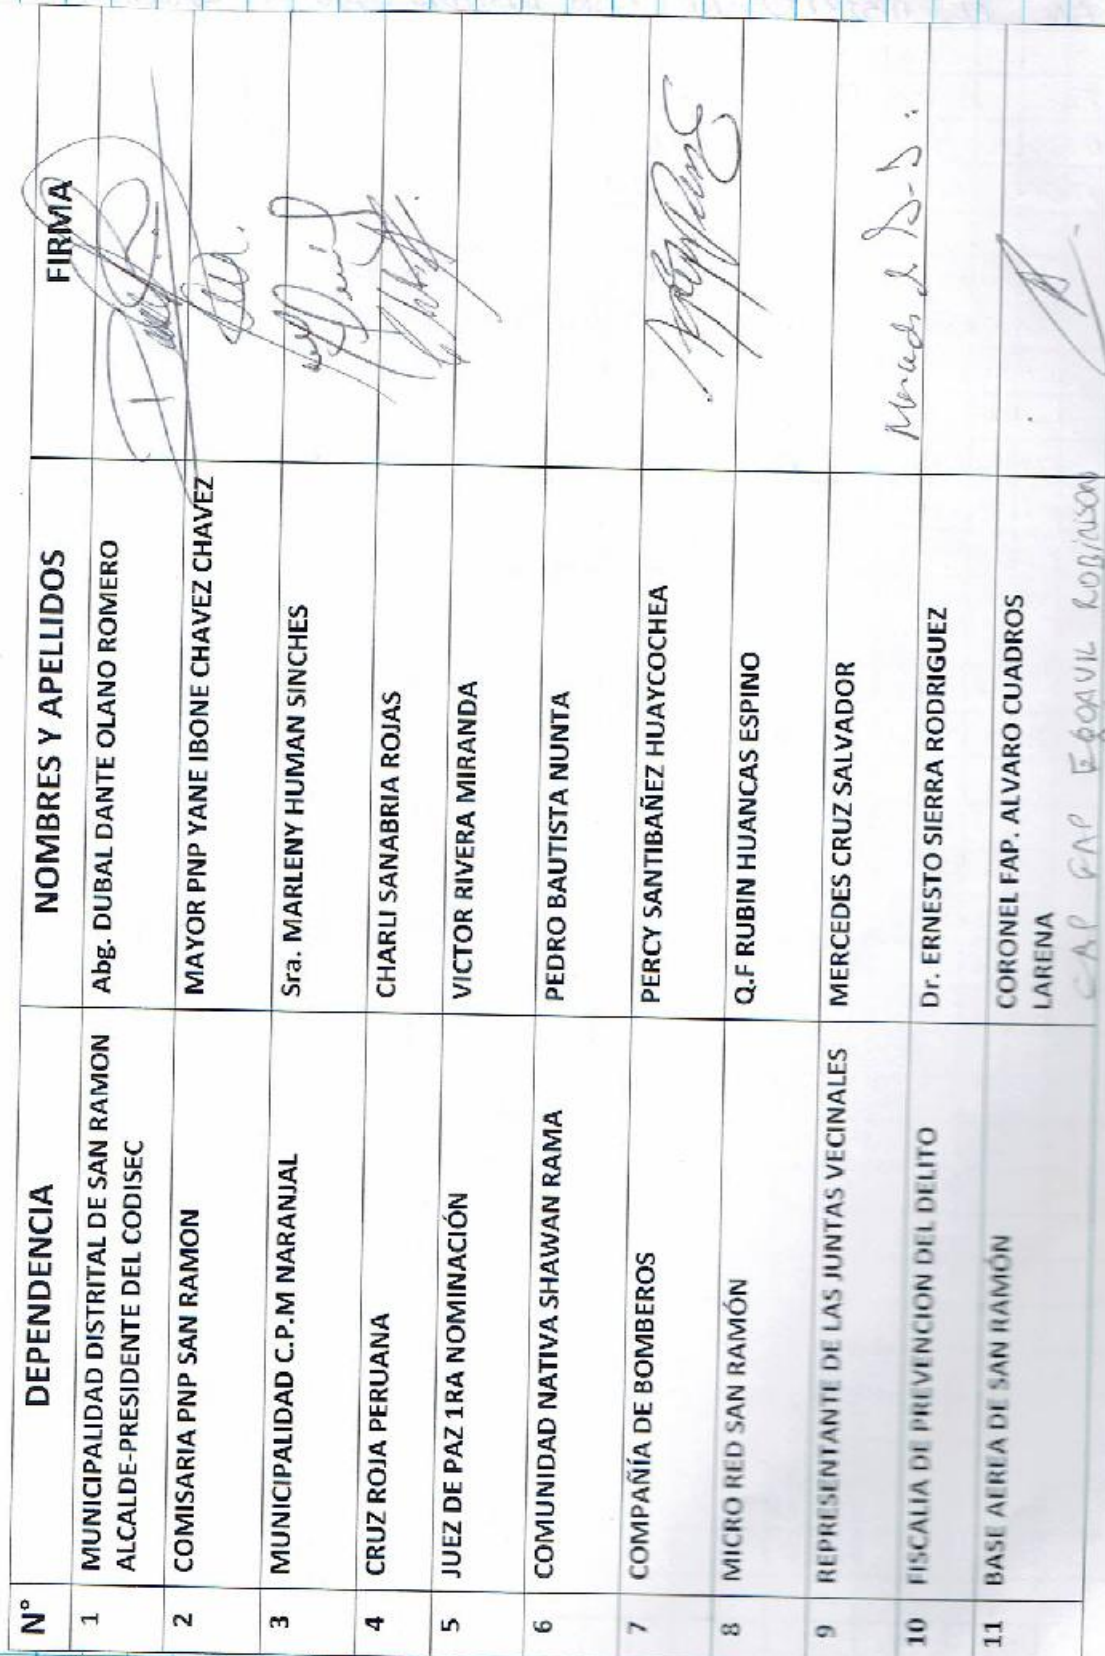 N° DEPENDENCIA NOMBRES Y APELLIDOS FIRMA
1 MUNICIPALIDAD DISTRITAL DE SAN RAMON Abg. DUBAL DANTE OLANO ROMERO
ALCALDE-PRESIDENTE DEL CODISEC
2 COMISARIA PNP SAN RAMON MAYOR PNP YANE IBONE CHAVEZ CHAVEZ
3 MUNICIPALIDAD C.P.M NARANJAL Sra. MARLENY HUMAN SINCHES
4 CRUZ ROJA PERUANA CHARLI SANABRIA ROJAS
5 JUEZ DE PAZ 1RA NOMINACIÓN VICTOR RIVERA MIRANDA
6 COMUNIDAD NATIVA SHAWAN RAMA PEDRO BAUTISTA NUNTA
7 COMPAÑÍA DE BOMBEROS PERCY SANTIBAÑEZ HUAYCOCHEA
8 MICRO RED SAN RAMÓN Q.F RUBIN HUANCAS ESPINO
9 REPRESENTANTE DE LAS JUNTAS VECINALES MERCEDES CRUZ SALVADOR
10 FISCALIA DE PREVENCION DEL DELITO Dr. ERNESTO SIERRA RODRIGUEZ
11 BASE AEREA DE SAN RAMÓN CORONEL FAP. ALVARO CUADROS
LARENA
CAP FAP EGOAVIL ROBINSON